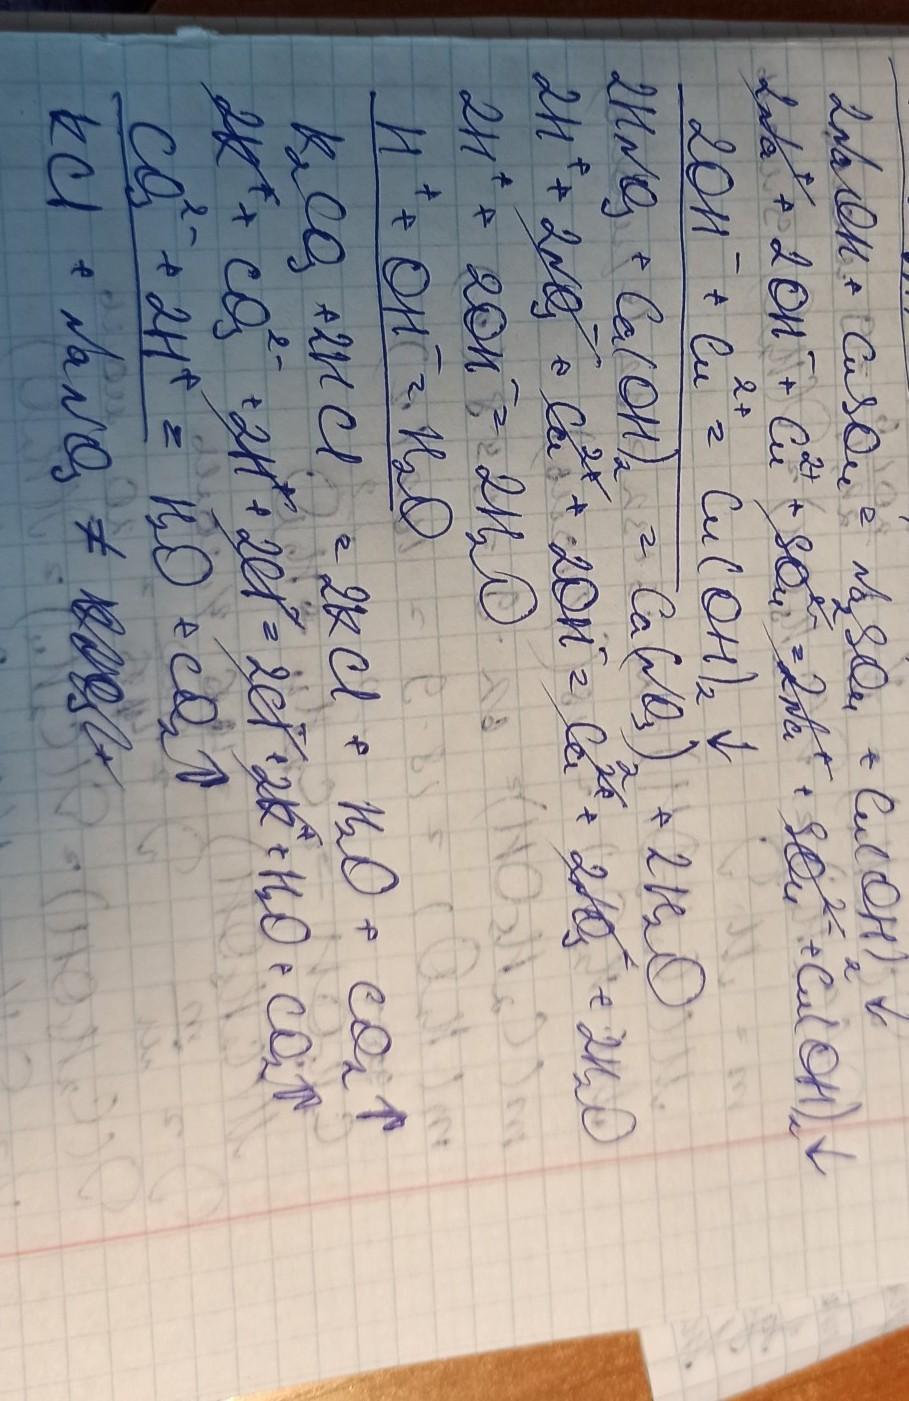 2NaOH + CuSO₄ = Na₂SO₄ + Cu(OH)₂↓
2Na⁺ + 2OH⁻ + Cu²⁺ + SO₄²⁻ = 2Na⁺ + SO₄²⁻ + Cu(OH)₂↓
2OH⁻ + Cu²⁺ = Cu(OH)₂↓
2HNO₃ + Ca(OH)₂ = Ca(NO₃)₂ + 2H₂O
2H⁺ + 2NO₃⁻ + Ca²⁺ + 2OH⁻ = Ca²⁺ + 2NO₃⁻ + 2H₂O
2H⁺ + 2OH⁻ = 2H₂O
H⁺ + OH⁻ = H₂O
K₂CO₃ + 2HCl = 2KCl + H₂O + CO₂↑
2K⁺ + CO₃²⁻ + 2H⁺ + 2Cl⁻ = 2Cl⁻ + 2K⁺ + H₂O + CO₂↑
CO₃²⁻ + 2H⁺ = H₂O + CO₂↑
KCl + NaNO₃ ≠